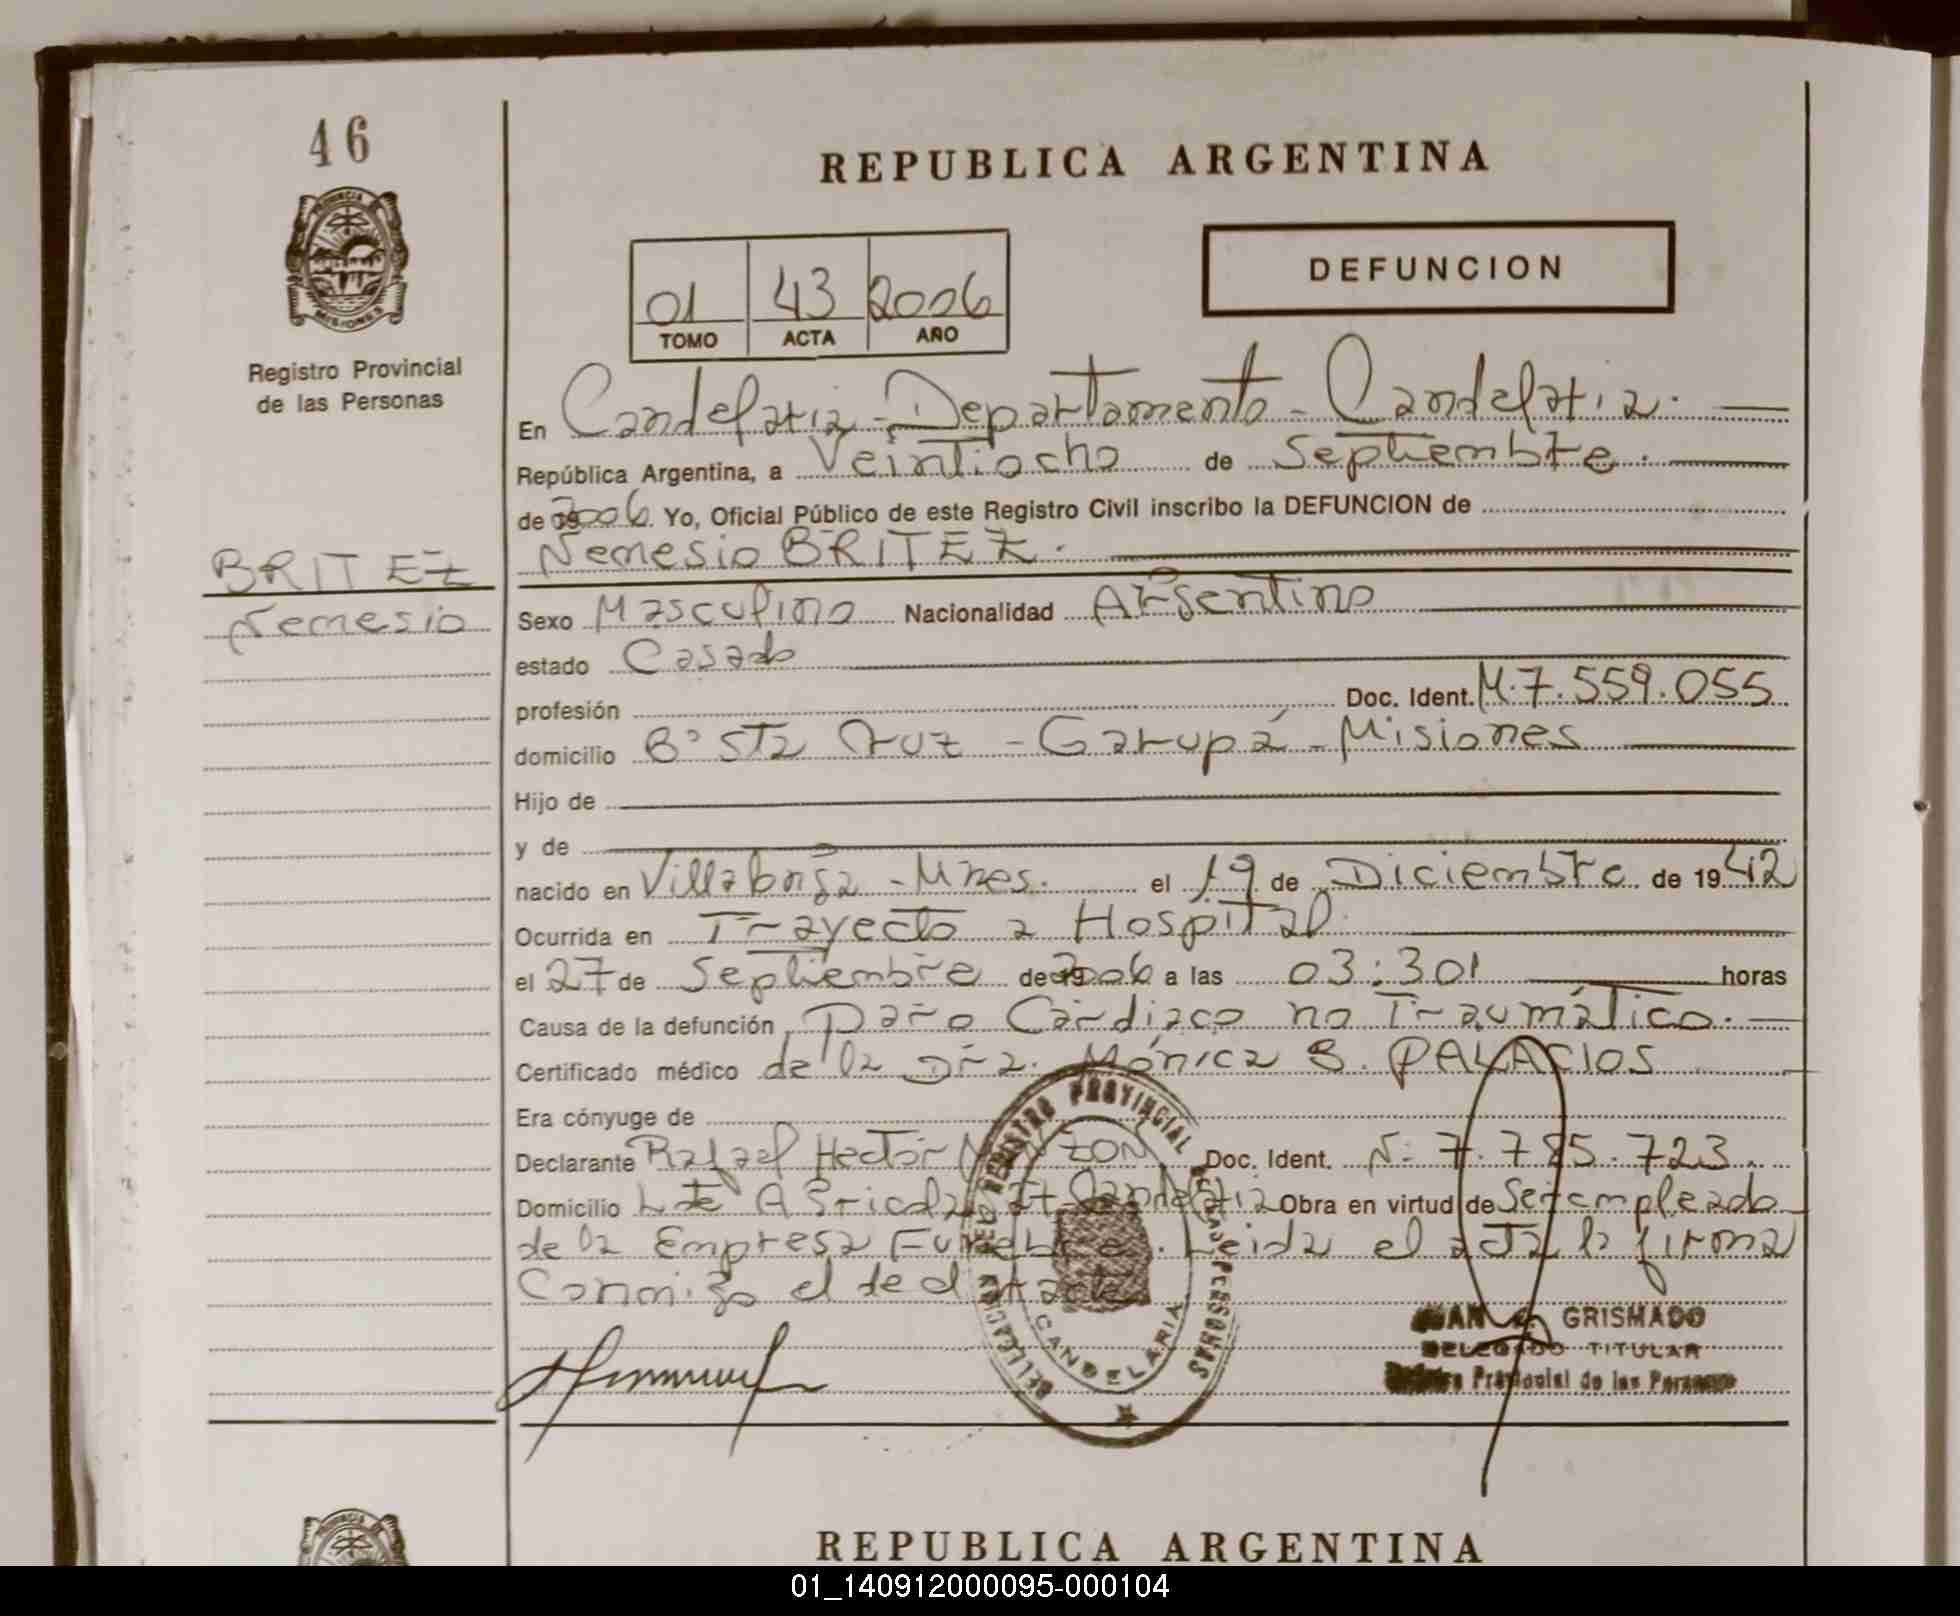 46
PROVINCIA DE
MISIONES
Registro Provincial
de las Personas
BRITEZ
Nemesio
REPUBLICA ARGENTINA
01 43 2006
TOMO ACTA AÑO
DEFUNCION
En Candelaria - Departamento - Candelaria.
República Argentina, a Veintiocho de Septiembre.
de 2006. Yo, Oficial Público de este Registro Civil inscribo la DEFUNCION de
Nemesio BRITEZ.
Sexo Masculino Nacionalidad Argentino
estado Casado
profesión Doc. Ident. M.7.559.055
domicilio B° Sta Cruz - Garupá - Misiones
Hijo de
y de
nacido en Villa - Mnes. el 19 de Diciembre de 1942
Ocurrida en Trayecto a Hospital.
el 27 de Septiembre de 2006 a las 03:30 horas
Causa de la defunción Paro Cardiaco no Traumático.
Certificado médico de la Dra. Mónica B. PALACIOS
Era cónyuge de
Declarante Rafael Hector Doc. Ident. N: 7.785.723.
Domicilio Lte Agricola Candelaria Obra en virtud de Ser empleado
de la Empresa Funebre. Leida el acta la firma
Conmigo el declarante
DELEGACION REGISTRO PROVINCIAL DE LAS PERSONAS
CANDELARIA
JUAN C. GRISMADO
DELEGADO TITULAR
Registro Provincial de las Personas
REPUBLICA ARGENTINA
01_140912000095-000104